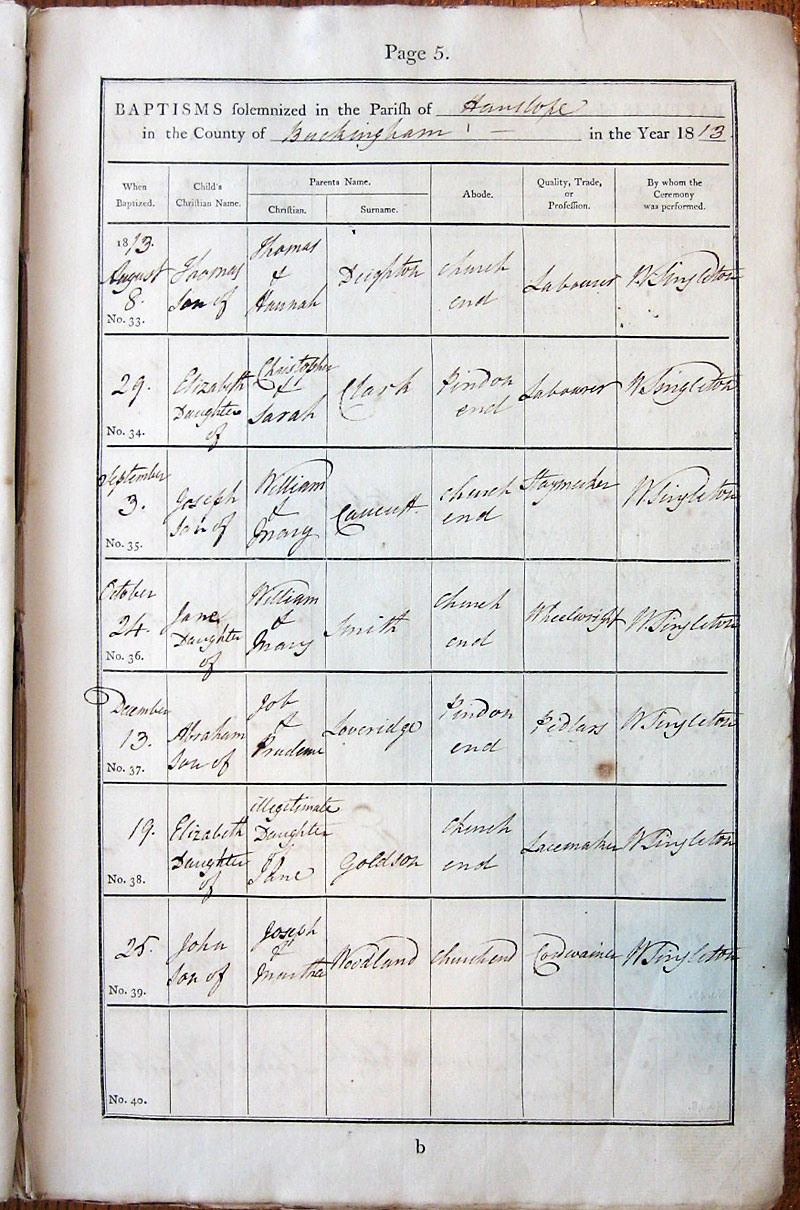 Page 5.
BAPTISMS solemnized in the Parish of Hanslope
in the County of Buckingham in the Year 1813.
When Baptized. Child's Christian Name. Parents Name. Christian. Surname. Abode. Quality, Trade, or Profession. By whom the Ceremony was performed.
1813. August 8. No. 33. Thomas Son of Thomas & Hannah Deighton Church end Labourer W Singleton
29. No. 34. Elizabeth Daughter of Christopher & Sarah Clark Pindon end Labourer W Singleton
September 3. No. 35. Joseph Son of William & Mary Church end Staymaker W Singleton
October 24. No. 36. Jane Daughter of William & Mary Smith Church end Wheelwright W Singleton
December 13. No. 37. Abraham Son of Job & Prudence Loveridge Pindon end Pedlars W Singleton
19. No. 38. Elizabeth Daughter of illegitimate Daughter Jane Goldson Church end Lacemaker W Singleton
25. No. 39. John Son of Joseph & Martha Woodland Church end Cordwainer W Singleton
No. 40.
b